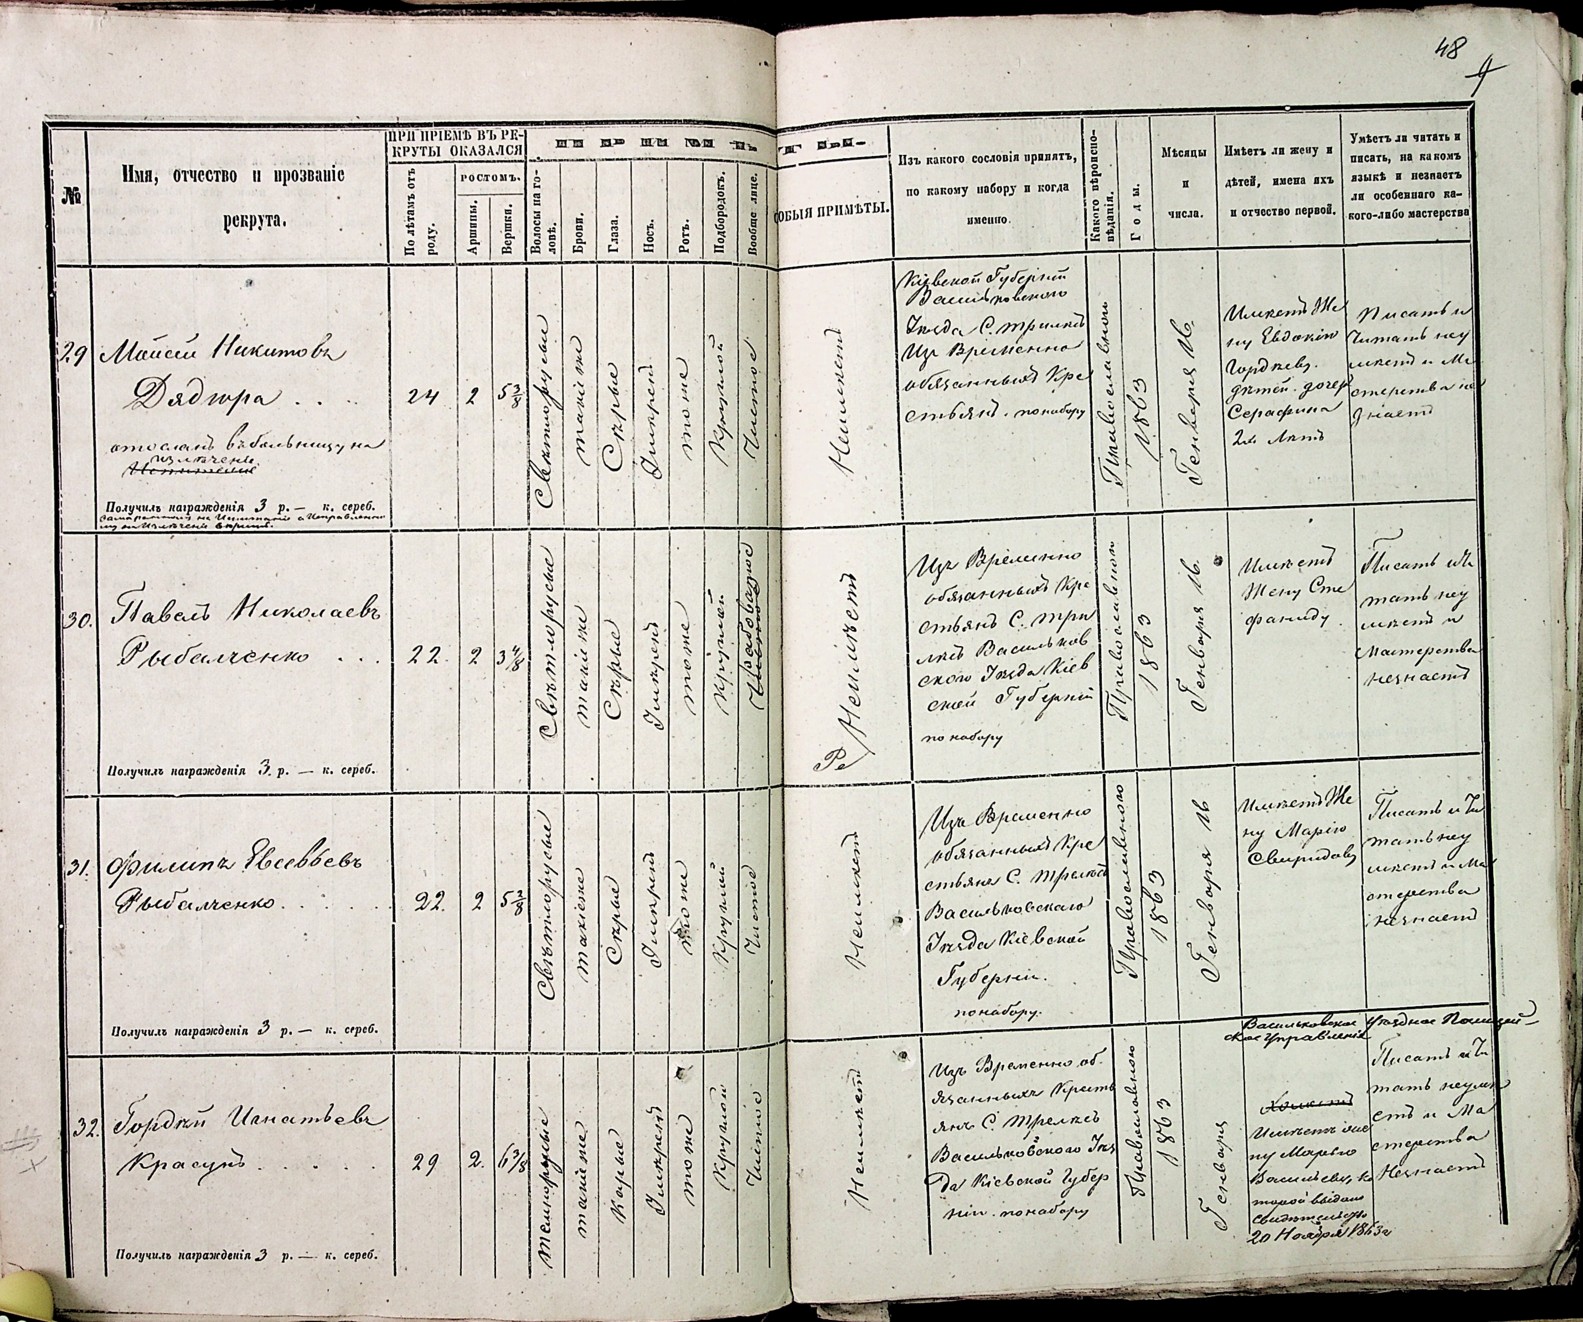 48
№
Имя, отчество и прозваніе
рекрута.
ПРИ ПРІЕМѢ ВЪ РЕ-
КРУТЫ ОКАЗАЛСЯ
По лѣтамъ отъ
роду.
РОСТОМЪ.
Аршины.
Вершки.
Волосы на го-
ловѣ.
Брови.
Глаза.
Носъ.
Ротъ.
Подбородокъ.
Вообще лице.
ОСОБЫЯ ПРИМѢТЫ.
Изъ какого сословія принятъ,
по какому набору и когда
именно.
Какого вѣроиспо-
вѣданія.
Годы.
Мѣсяцы
и
числа.
Имѣетъ ли жену и
дѣтей, имена ихъ
и отчество первой.
Умѣетъ ли читать и
писать, на какомъ
языкѣ и незнаетъ
ли особеннаго ка-
кого-либо мастерства
29
Моисей Никитовъ
Дядюра
отосланъ въ больницу на
излѣченіе
Получилъ награжденія 3 р. — к. сереб.
24
2
5 3/8
Свѣтлорусыи
такіеже
Сѣрые
Умѣрен
тоже
Круглой
Чистое
Неимѣетъ
Кіевской Губерніи
Васильковскаго
Уѣзда С. Трилѣсъ
Изъ Временно
обязанныхъ Кре
стьянъ. по набору
Православной
1863
Генваря 16.
Имѣетъ Же
ну Евдокію
Гордѣеву.
дѣтей. дочер
Серафима
2хъ Лѣтъ
Писать и
Читать неу
мѣетъ и Ма
стерства не
знаетъ
30.
Павелъ Николаевъ
Рыбалченко
Получилъ награжденія 3 р. — к. сереб.
22
2
3 4/8
Свѣтлорусые
такіеже
Сѣрые
Умѣрен
тоже
Круглой
Рабоватое
Чистое
Неимѣетъ
Ре
Изъ Временно
обязанныхъ Кре
стьянъ С. Три
лѣсъ Васильков
скаго Уѣзда Кіев
ской Губерніи
по набору
Православной
1863
Генваря 16.
Имѣетъ
Жену Сте
фаниду
Писать и Чи
тать неу
мѣетъ и
Мастерства
незнаетъ
31.
Филипъ Евсевьевъ
Рыбалченко
Получилъ награжденія 3 р. — к. сереб.
22.
2
5 3/8
Свѣтлорусые
такіеже
Сѣрые
Умѣрен
тоже
Круглый
Чистое
Неимѣетъ
Изъ Временно
обязанныхъ Кре
стьянъ С. Трилѣсъ
Васильковскаго
Уѣзда Кіевской
Губерніи.
по набору.
Православного
1863
Генваря 16
Имѣетъ Же
ну Марію
Свиридову
Писать и Чи
тать неу
мѣетъ и Ма
стерства
незнаетъ
32.
Гордѣй Игнатьевъ
Красунъ
Получилъ награжденія 3 р. — к. сереб.
29
2.
6 3/8
Темнорусые
такіеже
Карые
Умѣрен
тоже
Круглой
Чистое
Неимѣетъ
Изъ Временно об
язанныхъ Кресть
янъ С. Трилѣсъ
Васильковского Уѣз
да Кіевской Губер
ніи. по набору
Православною
1863
Генваря
Васильковское Уѣздное Полицей-
ское Управленіе
Имѣетъ же
ну Марью
Васильеву, ко
торой выдано
свидѣтельство
20 Ноября 1863 г
Писать и Чи
тать неумѣ
етъ и Ма
стерства
Незнаетъ